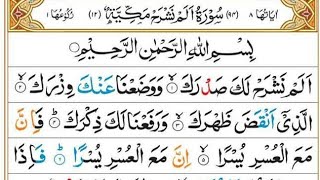 اٰیاتها ۸ (۹۴) سُوْرَةُ اَلَمْ نَشْرَحْ مَكِّيَّةٌ (۱۲) رُكُوْعُهَا ۱
بِسْمِ اللّٰهِ الرَّحْمٰنِ الرَّحِيْمِ
اَلَمْ نَشْرَحْ لَكَ صَدْرَكَ ۙ۱ وَوَضَعْنَا عَنْكَ وِزْرَكَ ۙ۲
الَّذِيْۤ اَنْقَضَ ظَهْرَكَ ۙ۳ وَرَفَعْنَا لَكَ ذِكْرَكَ ؕ۴ فَاِنَّ
مَعَ الْعُسْرِ يُسْرًا ۙ۵ اِنَّ مَعَ الْعُسْرِ يُسْرًا ؕ۶ فَاِذَا